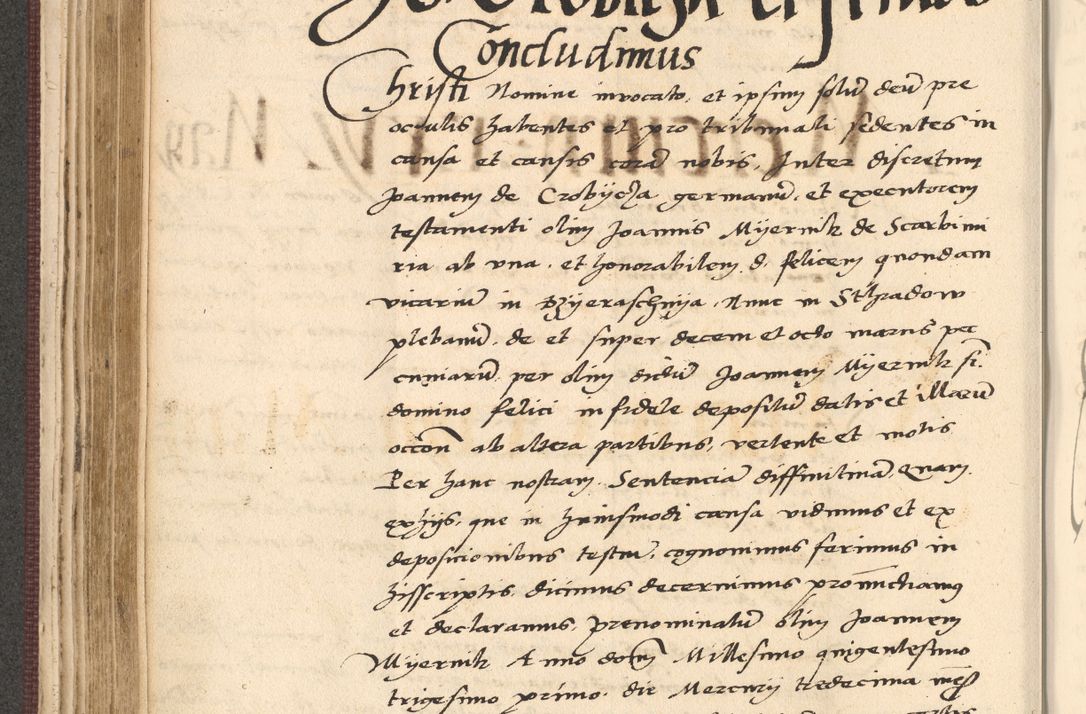 Concludimus
Christi Nomine invocato, et ipsum solū deū pre
oculis habentes et pro tribunali sedentes in
causa et causis corā nobis, Inter discretum
Joannem de Crobycza germanū, et executorem
testamenti olim Joannis Myernik de Scarbimi
ria ab una, et honorabilem d. felicem quondam
vicariū in , Nunc in Sthradow
plebanū, de et super decem et octo marcis pec
cuniarū, per olim dictū Joannem Myernik
domino felici in fidele depositū datis et illarū
occōn ab altera partibus, vertente et motis
Per hanc nostram Sentenciā diffinitivā, Quam
exhijs, que in huiusmodi causa vidimus et ex
deposicionibus testiū, cognovimus ferimus in
hisscriptis, dicimus decernimus pronūctiamus
et declaramus, prenominatū olim Joannem
Myernik Anno domī Millesimo quigentesimo
trigesimo primo, die Mercurij tredecima